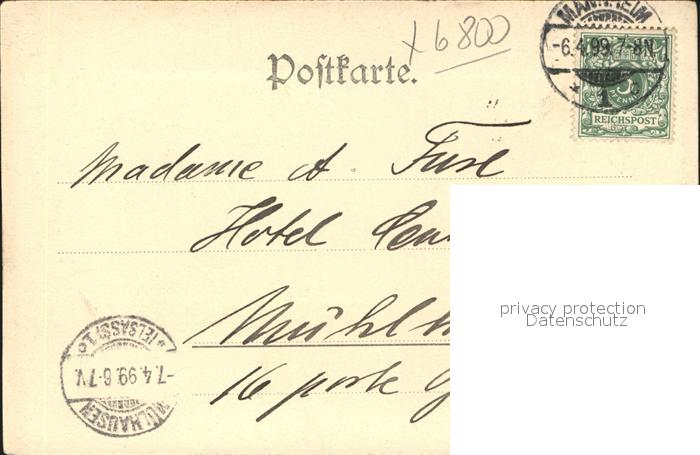 +6800
MANNHEIM
-6.4.99.7-8N.
1
5
PFENNIG
REICHSPOST
Postkarte.
Madame A
Hotel
privacy protection
Datenschutz
MÜLHAUSEN
-7.4.99.6-7V.
* (ELSASS) 1
16 porte